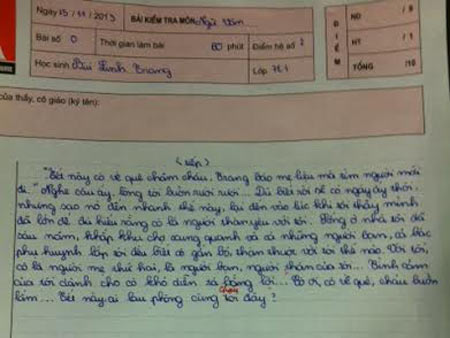 Ngày 15 / 11 / 2013 BÀI KIỂM TRA MÔN: Ngữ Văn
Bài số 0 Thời gian làm bài 80 phút Điểm hệ số 2
Học sinh Bùi Linh Trang Lớp 7E1
ĐIỂM
ND / 9
HT / 1
TỔNG /10
của thầy, cô giáo (ký tên):
(tiếp)
"Tết này cô về quê chăm cháu, Trang bảo mẹ liệu mà tìm người mới
đi." Nghe câu ấy, lòng tôi buồn rười rượi... Đã biết rồi sẽ có ngày ấy thôi,
nhưng sao nó đến nhanh thế này, lại đến vào lúc khi tôi thấy mình
đã lớn để đủ hiểu rằng cô là người thân yêu với tôi. Sống ở nhà tôi đã
sáu năm, khắp khu chợ xung quanh và cả những người bạn, cả bác
phụ huynh lớp tôi đều biết cô gắn bó, thân thuộc với tôi thế nào. Với tôi,
cô là người mẹ thứ hai, là người bạn, người thân của tôi... Tình cảm
của tôi dành cho cô khó diễn tả bằng lời... Cô ơi, cô về quê, cháu buồn
lắm... Tết này ai lau phòng cùng tôi đây?
cháu